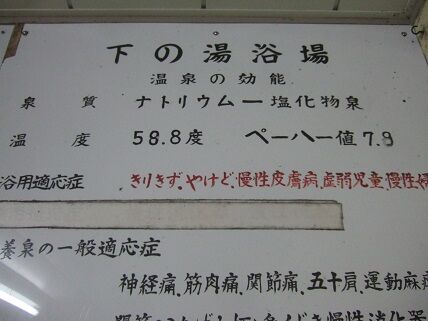 下の湯浴場
温泉の効能
泉質 ナトリウムー塩化物泉
温度 58.8度 ペーハー値7.9
浴用適応症 きりきず､やけど､慢性皮膚病､虚弱児童､慢性婦
養泉の一般適応症
神経痛､筋肉痛､関節痛､五十肩､運動麻痺